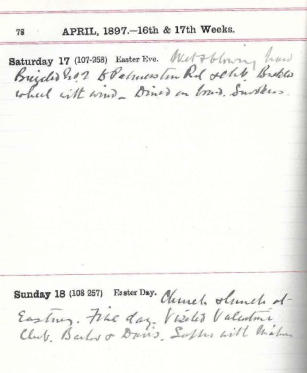 78 APRIL, 1897.—16th & 17th Weeks.
Saturday 17 (107-258) Easter Eve. Wet & blowing hard
Bicycled No 2 to Palmerston Rd & Club.
wheel with wind – Dined on board.
Sunday 18 (108-257) Easter Day. Church & lunch at
Eastney. Fine day. Visited Valentine
Club. & Davis. with